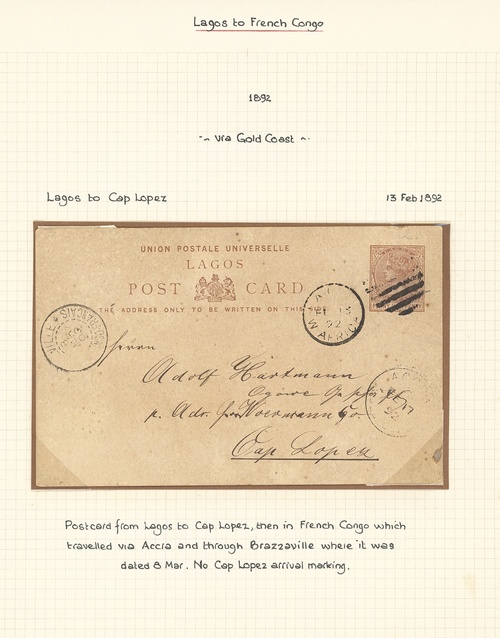 Lagos to French Congo
1892
via Gold Coast
Lagos to Cap Lopez
13 Feb 1892
UNION POSTALE UNIVERSELLE
LAGOS
POST CARD
THE ADDRESS ONLY TO BE WRITTEN ON THIS
92
W AFRICA
Herrn
Adolf Hartmann
p. Adr. Woermann Co.
Cap Lopez
Postcard from Lagos to Cap Lopez, then in French Congo which
travelled via Accra and through Brazzaville where it was
dated 8 Mar. No Cap Lopez arrival marking.